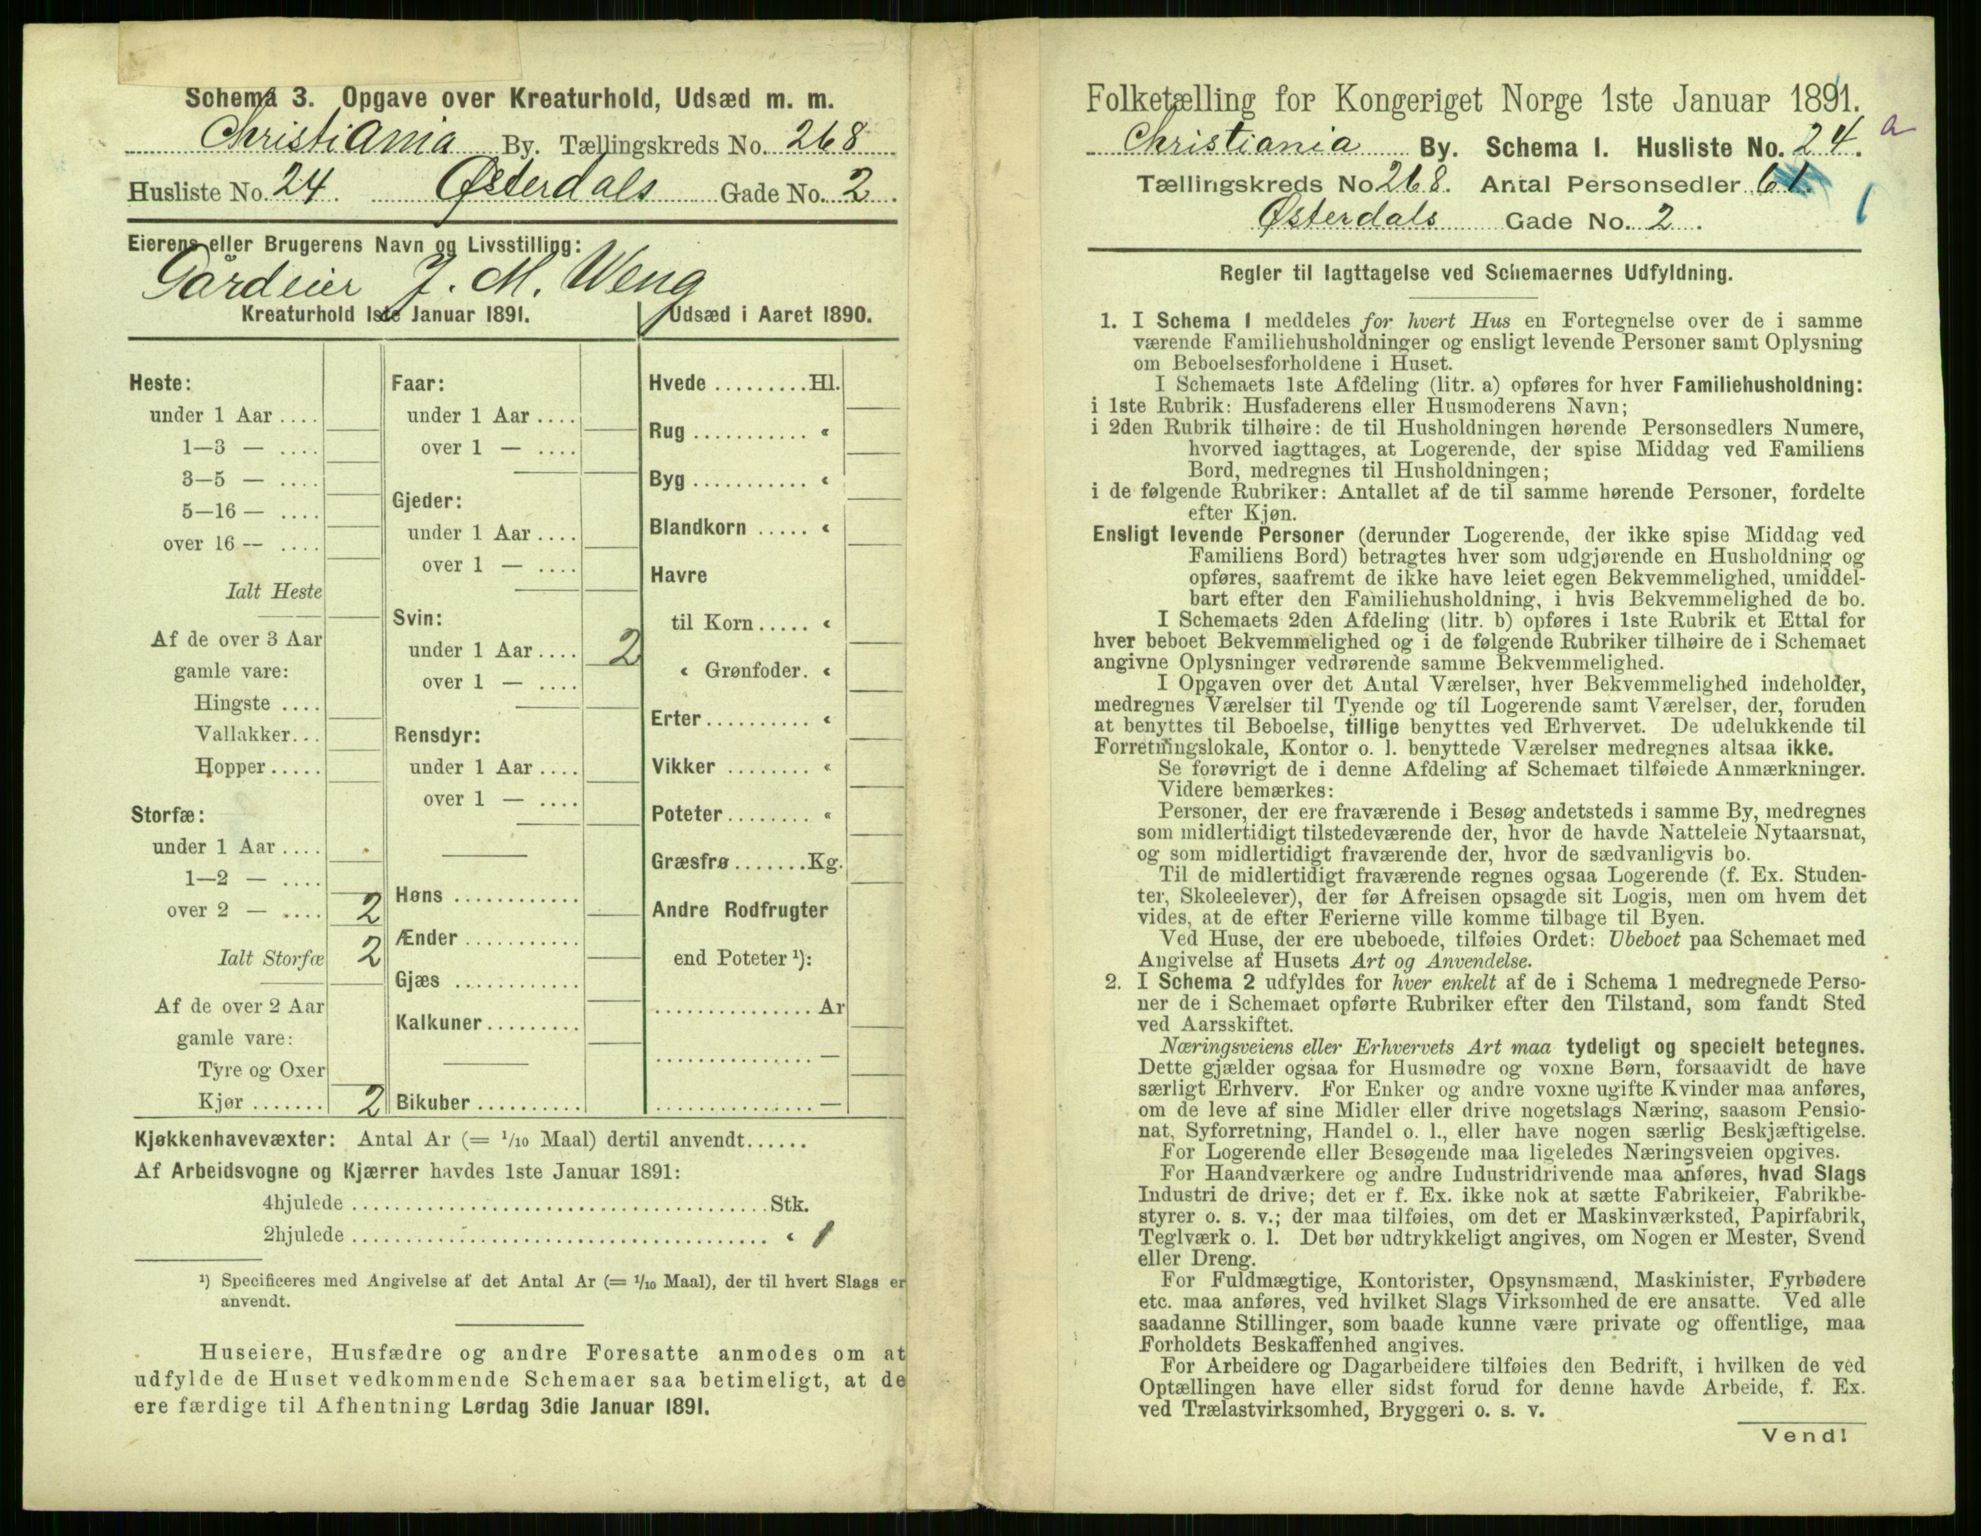 Schema 3. Opgave over Kreaturhold, Udsæd m. m.
Christiania By. Tællingskreds No. 268
Husliste No. 24. Østerdals Gade No. 2.
Eierens eller Brugerens Navn og Livsstilling:
Gårdeier J. M. Weng
Kreaturhold 1ste Januar 1891.
Heste:
under 1 Aar ....
1—3 — ....
3—5 — ....
5—16 — ....
over 16 — ....
Ialt Heste
Af de over 3 Aar
gamle vare:
Hingste ....
Vallakker...
Hopper.....
Storfæ:
under 1 Aar ....
1—2 — ....
over 2 — .... 2
Ialt Storfæ 2
Af de over 2 Aar
gamle vare:
Tyre og Oxer
Kjør ....... 2
Faar:
under 1 Aar ....
over 1 — ....
Gjeder:
under 1 Aar ....
over 1 — ....
Svin:
under 1 Aar .... 2
over 1 — ....
Rensdyr:
under 1 Aar ....
over 1 — ....
Høns ............
Ænder ...........
Gjæs ............
Kalkuner.........
Bikuber ..........
Udsæd i Aaret 1890.
Hvede .........Hl.
Rug ........... «
Byg ........... «
Blandkorn ..... «
Havre
til Korn ..... «
« Grønfoder. «
Erter .......... «
Vikker ........ «
Poteter ........ «
Græsfrø .......Kg.
Andre Rodfrugter
end Poteter ¹):
............... Ar
............... —
............... —
Kjøkkenhavevæxter: Antal Ar (= 1/10 Maal) dertil anvendt......
Af Arbeidsvogne og Kjærrer havdes 1ste Januar 1891:
4hjulede ....................................... Stk.
2hjulede ....................................... « 1
¹) Specificeres med Angivelse af det Antal Ar (= 1/10 Maal), der til hvert Slags er
anvendt.
Huseiere, Husfædre og andre Foresatte anmodes om at
udfylde de Huset vedkommende Schemaer saa betimeligt, at de
ere færdige til Afhentning Lørdag 3die Januar 1891.
Folketælling for Kongeriget Norge 1ste Januar 1891.
Christiania By. Schema I. Husliste No. 24. a
Tællingskreds No 268. Antal Personsedler 61. 1
Østerdals Gade No. 2.
Regler til Iagttagelse ved Schemaernes Udfyldning.
1. I Schema 1 meddeles for hvert Hus en Fortegnelse over de i samme
værende Familiehusholdninger og ensligt levende Personer samt Oplysning
om Beboelsesforholdene i Huset.
I Schemaets 1ste Afdeling (litr. a) opføres for hver Familiehusholdning:
i 1ste Rubrik: Husfaderens eller Husmoderens Navn;
i 2den Rubrik tilhøire: de til Husholdningen hørende Personsedlers Numere,
hvorved iagttages, at Logerende, der spise Middag ved Familiens
Bord, medregnes til Husholdningen;
i de følgende Rubriker: Antallet af de til samme hørende Personer, fordelte
efter Kjøn.
Ensligt levende Personer (derunder Logerende, der ikke spise Middag ved
Familiens Bord) betragtes hver som udgjørende en Husholdning og
opføres, saafremt de ikke have leiet egen Bekvemmelighed, umiddel-
bart efter den Familiehusholdning, i hvis Bekvemmelighed de bo.
I Schemaets 2den Afdeling (litr. b) opføres i 1ste Rubrik et Ettal for
hver beboet Bekvemmelighed og i de følgende Rubriker tilhøire de i Schemaet
angivne Oplysninger vedrørende samme Bekvemmelighed.
I Opgaven over det Antal Værelser, hver Bekvemmelighed indeholder,
medregnes Værelser til Tyende og til Logerende samt Værelser, der, foruden
at benyttes til Beboelse, tillige benyttes ved Erhvervet. De udelukkende til
Forretningslokale, Kontor o. l. benyttede Værelser medregnes altsaa ikke.
Se forøvrigt de i denne Afdeling af Schemaet tilføiede Anmærkninger.
Videre bemærkes:
Personer, der ere fraværende i Besøg andetsteds i samme By, medregnes
som midlertidigt tilstedeværende der, hvor de havde Natteleie Nytaarsnat,
og som midlertidigt fraværende der, hvor de sædvanligvis bo.
Til de midlertidigt fraværende regnes ogsaa Logerende (f. Ex. Studen-
ter, Skoleelever), der før Afreisen opsagde sit Logis, men om hvem det
vides, at de efter Ferierne ville komme tilbage til Byen.
Ved Huse, der ere ubeboede, tilføies Ordet: Ubeboet paa Schemaet med
Angivelse af Husets Art og Anvendelse.
2. I Schema 2 udfyldes for hver enkelt af de i Schema 1 medregnede Perso-
ner de i Schemaet opførte Rubriker efter den Tilstand, som fandt Sted
ved Aarsskiftet.
Næringsveiens eller Erhvervets Art maa tydeligt og specielt betegnes.
Dette gjælder ogsaa for Husmødre og voxne Børn, forsaavidt de have
særligt Erhverv. For Enker og andre voxne ugifte Kvinder maa anføres,
om de leve af sine Midler eller drive nogetslags Næring, saasom Pensio-
nat, Syforretning, Handel o. l., eller have nogen særlig Beskjæftigelse.
For Logerende eller Besøgende maa ligeledes Næringsveien opgives.
For Haandværkere og andre Industridrivende maa anføres, hvad Slags
Industri de drive; det er f. Ex. ikke nok at sætte Fabrikeier, Fabrikbe-
styrer o. s. v.; der maa tilføies, om det er Maskinværksted, Papirfabrik,
Teglværk o. l. Det bør udtrykkeligt angives, om Nogen er Mester, Svend
eller Dreng.
For Fuldmægtige, Kontorister, Opsynsmænd, Maskinister, Fyrbødere
etc. maa anføres, ved hvilket Slags Virksomhed de ere ansatte. Ved alle
saadanne Stillinger, som baade kunne være private og offentlige, maa
Forholdets Beskaffenhed angives.
For Arbeidere og Dagarbeidere tilføies den Bedrift, i hvilken de ved
Optællingen have eller sidst forud for denne havde Arbeide, f. Ex.
ved Trælastvirksomhed, Bryggeri o. s. v.
Vend!